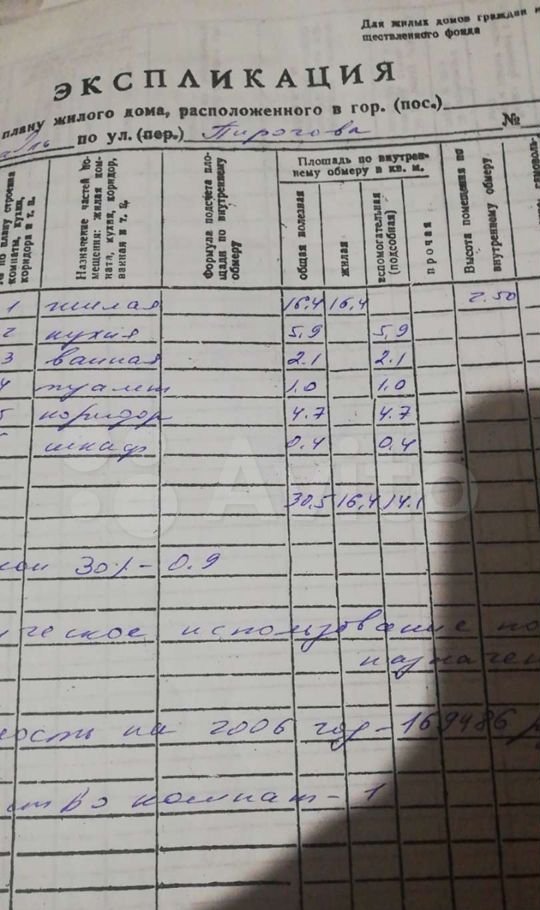 Для жилых домов граждан и
щественного фонда
ЭКСПЛИКАЦИЯ
плану жилого дома, расположенного в гор. (пос.)
по ул. (пер.) Пирогова №
по плану строения
комнаты, кухни,
коридора и т. п.
Назначение частей по-
мещения: жилая ком-
ната, кухня, коридор,
ванная и т. д.
Формула подсчета пло-
щади по внутреннему
обмеру
Площадь по внутрен-
нему обмеру в кв. м.
общая полезная
жилая
вспомогательная
(подсобная)
прочая
Высота помещения по
внутреннему обмеру
1 жилая 16,4 16,4 2.50
2 кухня 5,9 5,9
3 ванная 2.1 2.1
4 туалет 1.0 1.0
5 коридор 4.7 4.7
шкаф 0.4 0.4
30,5 16,4 14.1
30% - 0.9
ческое использование по
назначен
ность на 2006 год - 169486
комнат - 1
Avito